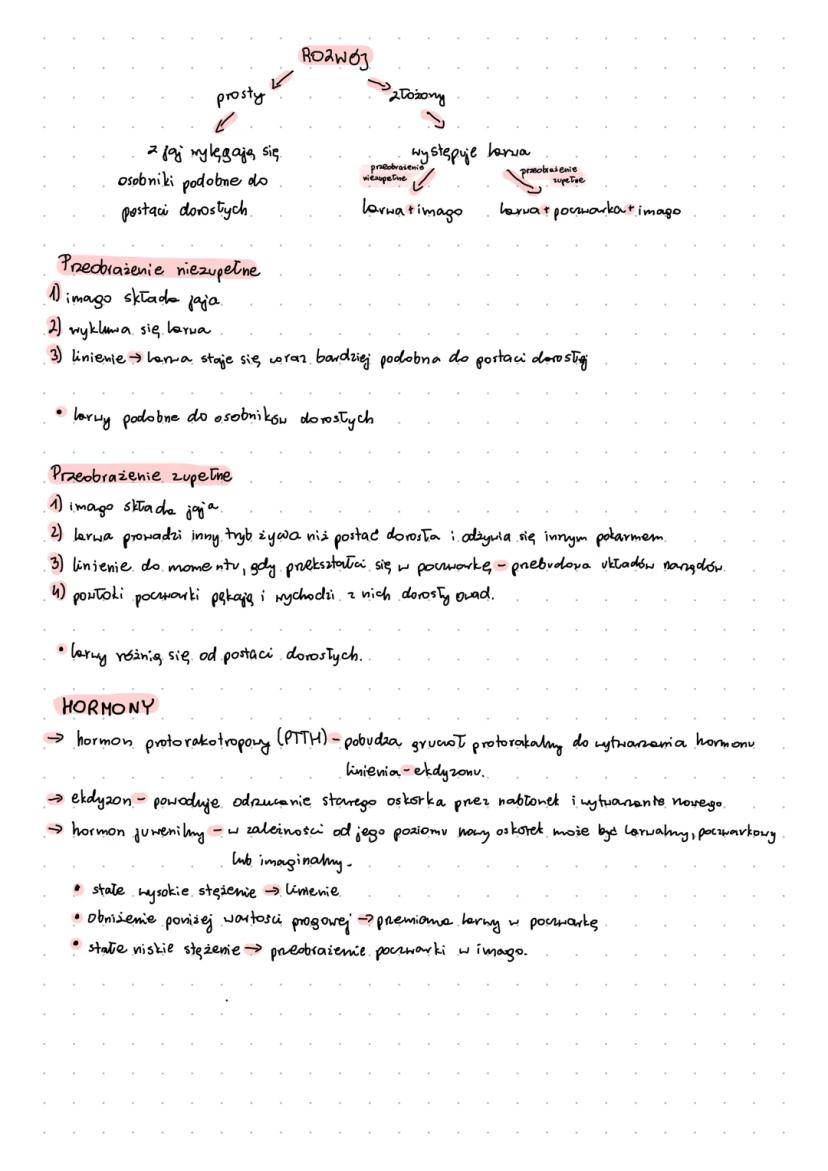 ROZWÓJ
prosty złożony
z jaj wylęgają się
osobniki podobne do
postaci dorosłych
występuje larwa
przeobrażenie
niezupełne
przeobrażenie
zupełne
larwa + imago
larwa + poczwarka + imago
Przeobrażenie niezupełne
1) imago składa jaja
2) wykluwa się larwa
3) linienie → larwa staje się coraz bardziej podobna do postaci dorosłej
• larwy podobne do osobników dorosłych
Przeobrażenie zupełne
1) imago składa jaja
2) larwa prowadzi inny tryb życia niż postać dorosła i odżywia się innym pokarmem
3) linienie do momentu, gdy przekształci się w poczwarkę - przebudowa układów narządów
4) powłoki poczwarki pękają i wychodzi z nich dorosły owad.
• larwy różnią się od postaci dorosłych.
HORMONY
→ hormon protorakotropowy (PTTH) - pobudza gruczoł protorakalny do wytwarzania hormonu
linienia - ekdyzonu.
→ ekdyzon - powoduje odrzucanie starego oskórka przez nabłonek i wytwarzanie nowego
→ hormon juwenilny - w zależności od jego poziomu nowy oskórek może być larwalny, poczwarkowy
lub imaginalny.
• stałe wysokie stężenie → linienie
• obniżenie poniżej wartości progowej → przemiana larwy w poczwarkę
• stałe niskie stężenie → przeobrażenie poczwarki w imago.